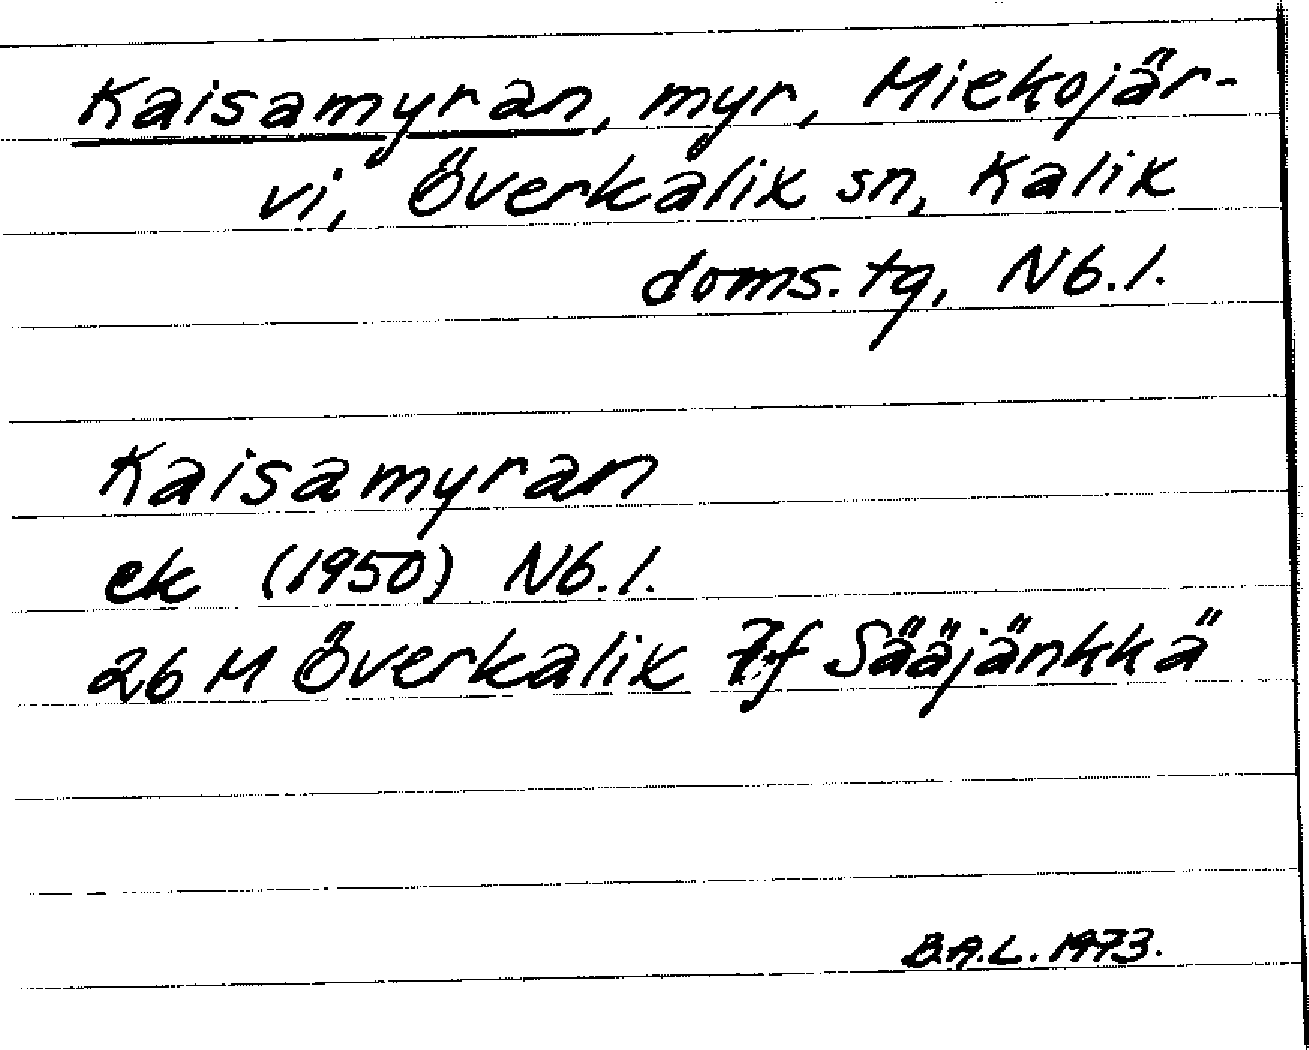 Kaisamyran, myr, Miekojär-
vi, Överkalix sn, Kalix
doms.tg, Nb.l.
Kaisamyran
ek (1950) Nb.l.
26 M Överkalix 7f Sääjänkkä
B.A.L. 1973.